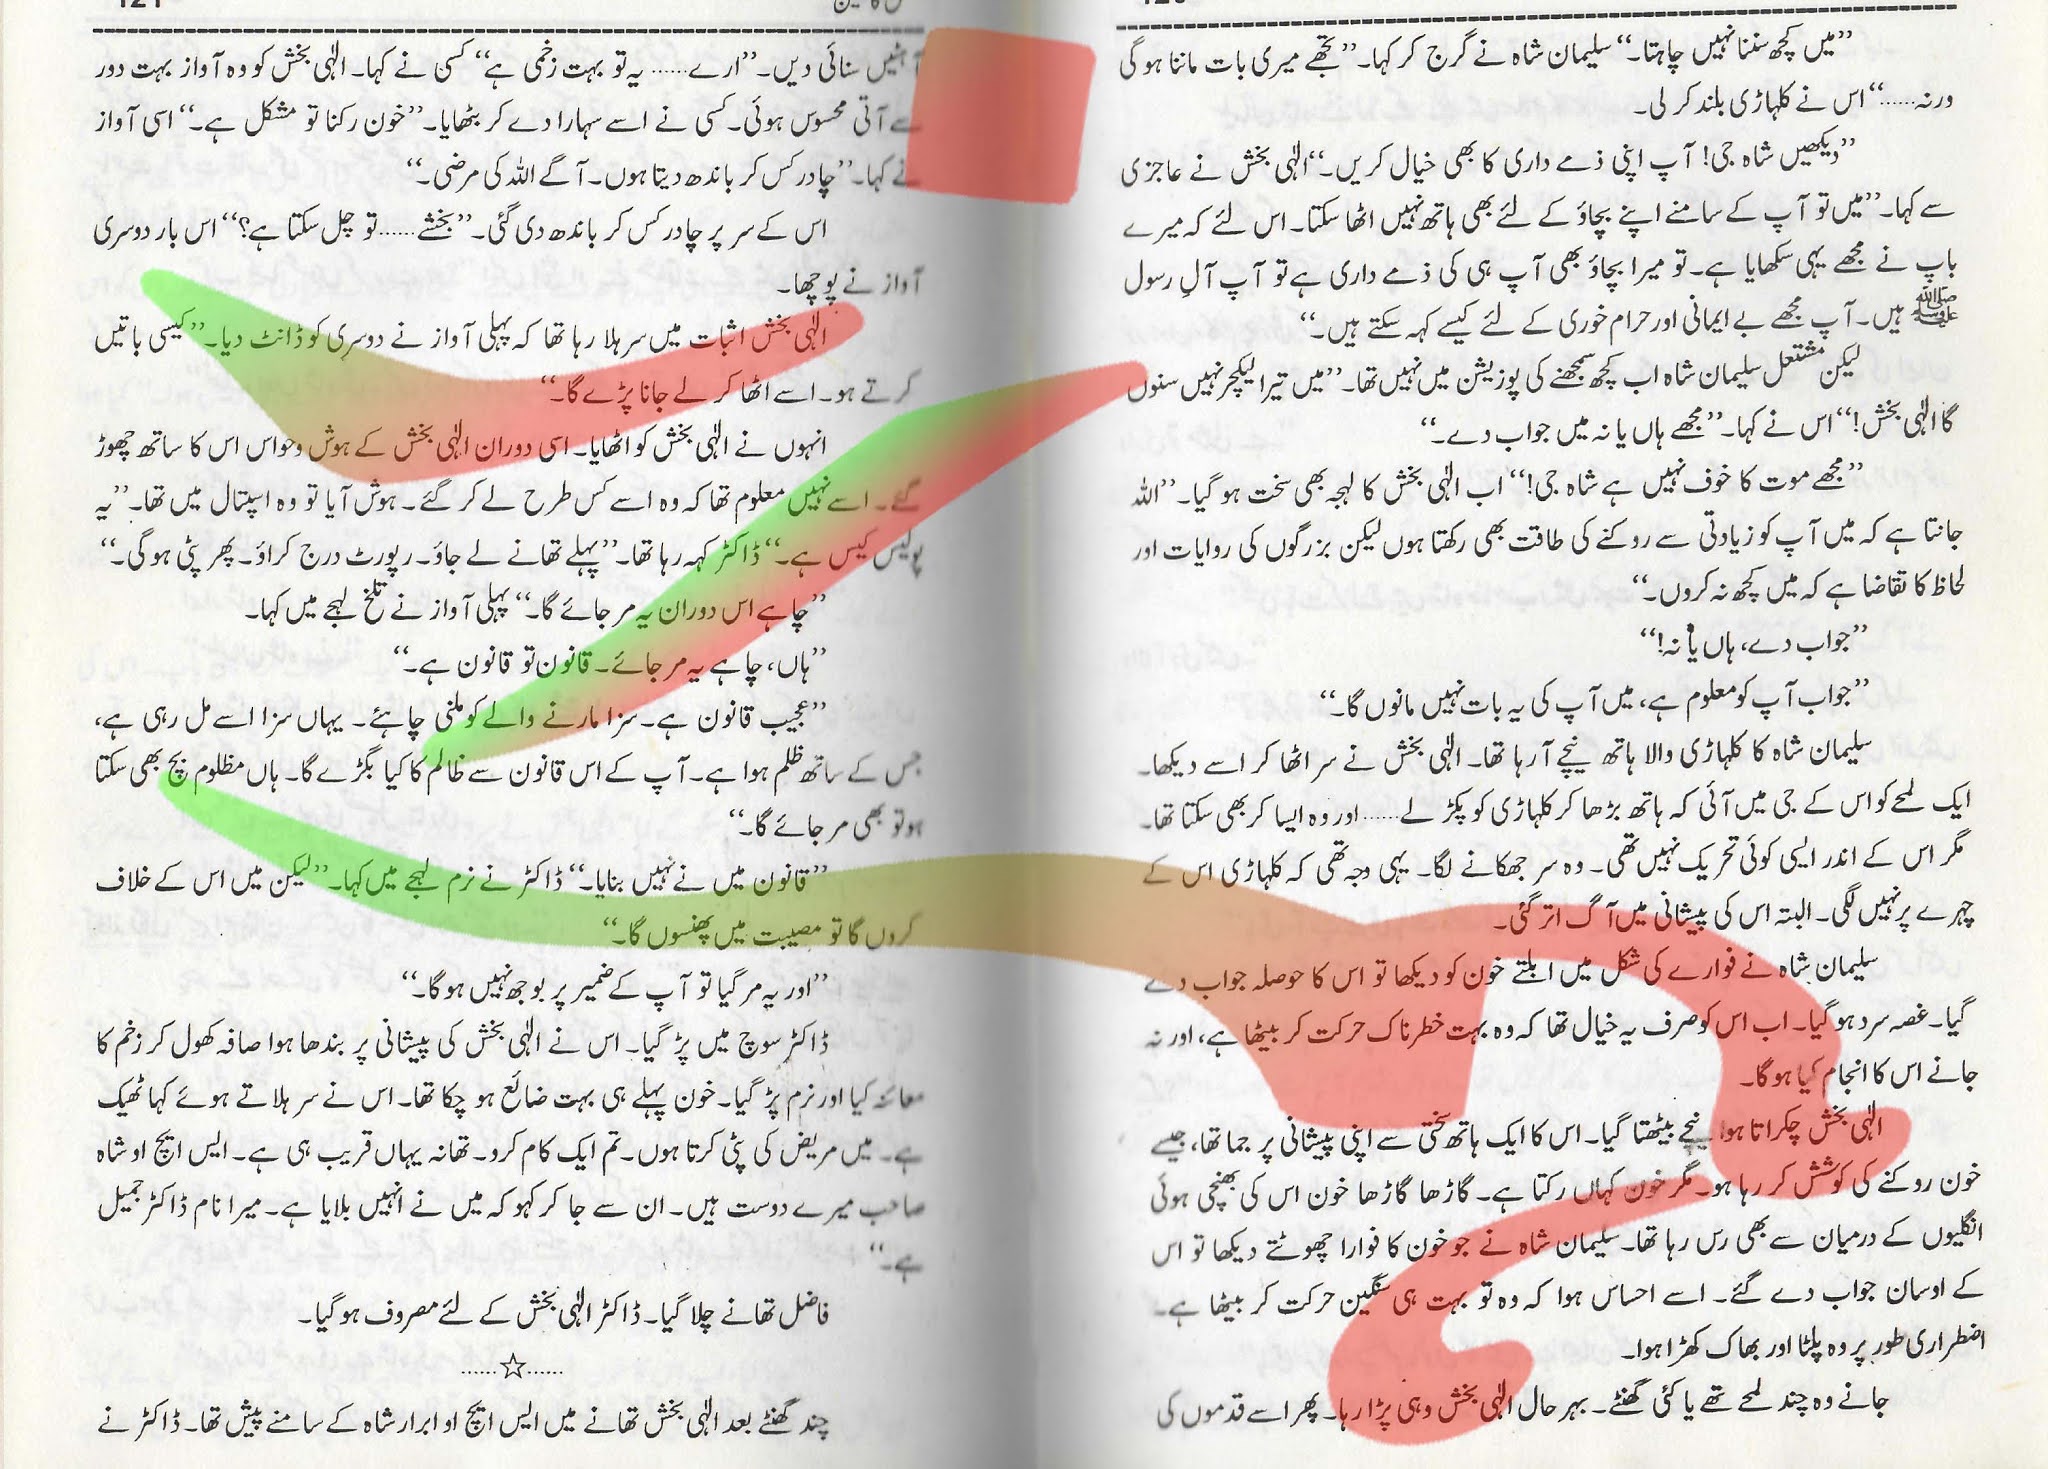 ”میں کچھ سننا نہیں چاہتا۔“ سلیمان شاہ نے گرج کر کہا۔ ”تجھے میری بات ماننا ہوگی
ورنہ......“ اس نے کلہاڑی بلند کر لی۔
”دیکھیں شاہ جی! آپ اپنی ذمے داری کا بھی خیال کریں۔“ الٰہی بخش نے عاجزی
سے کہا۔ ”میں تو آپ کے سامنے اپنے بچاؤ کے لئے بھی ہاتھ نہیں اٹھا سکتا۔ اس لئے کہ میرے
باپ نے مجھے یہی سکھایا ہے۔ تو میرا بچاؤ بھی آپ ہی کی ذمے داری ہے تو آپ آلِ رسول
ﷺ ہیں۔ آپ مجھے بے ایمانی اور حرام خوری کے لئے کیسے کہہ سکتے ہیں۔“
لیکن مشتعل سلیمان شاہ اب کچھ سمجھنے کی پوزیشن میں نہیں تھا۔ ”میں تیرا لیکچر نہیں سنوں
گا الٰہی بخش!“ اس نے کہا۔ ”مجھے ہاں یا نہ میں جواب دے۔“
”مجھے موت کا خوف نہیں ہے شاہ جی!“ اب الٰہی بخش کا لہجہ بھی سخت ہو گیا۔ ”اللہ
جانتا ہے کہ میں آپ کو زیادتی سے روکنے کی طاقت بھی رکھتا ہوں لیکن بزرگوں کی روایات اور
لحاظ کا تقاضا ہے کہ میں کچھ نہ کروں۔“
”جواب دے، ہاں یا نہ!“
”جواب آپ کو معلوم ہے، میں آپ کی یہ بات نہیں مانوں گا۔“
سلیمان شاہ کا کلہاڑی والا ہاتھ نیچے آ رہا تھا۔ الٰہی بخش نے سر اٹھا کر اسے دیکھا۔
ایک لمحے کو اس کے جی میں آئی کہ ہاتھ بڑھا کر کلہاڑی کو پکڑ لے...... اور وہ ایسا کر بھی سکتا تھا۔
مگر اس کے اندر ایسی کوئی تحریک نہیں تھی۔ وہ سر جھکانے لگا۔ یہی وجہ تھی کہ کلہاڑی اس کے
چہرے پر نہیں لگی۔ البتہ اس کی پیشانی میں آگ اتر گئی۔
سلیمان شاہ نے فوارے کی شکل میں ابلتے خون کو دیکھا تو اس کا حوصلہ جواب دے
گیا۔ غصہ سرد ہو گیا۔ اب اس کو صرف یہ خیال تھا کہ وہ بہت خطرناک حرکت کر بیٹھا ہے، اور نہ
جانے اس کا انجام کیا ہوگا۔
الٰہی بخش چکراتا ہوا نیچے بیٹھتا گیا۔ اس کا ایک ہاتھ سختی سے اپنی پیشانی پر جما تھا، جیسے
خون روکنے کی کوشش کر رہا ہو۔ مگر خون کہاں رکتا ہے۔ گاڑھا گاڑھا خون اس کی بھنچی ہوئی
انگلیوں کے درمیان سے بھی رس رہا تھا۔ سلیمان شاہ نے جو خون کا فوارا چھوٹتے دیکھا تو اس
کے اوسان جواب دے گئے۔ اسے احساس ہوا کہ وہ تو بہت ہی سنگین حرکت کر بیٹھا ہے۔
اضطراری طور پر وہ پلٹا اور بھاگ کھڑا ہوا۔
جانے وہ چند لمحے تھے یا کئی گھنٹے۔ بہر حال الٰہی بخش وہی پڑا رہا۔ پھر اسے قدموں کی
آہٹیں سنائی دیں۔ ”ارے...... یہ تو بہت زخمی ہے“ کسی نے کہا۔ الٰہی بخش کو وہ آواز بہت دور
سے آتی محسوس ہوئی۔ کسی نے اسے سہارا دے کر بٹھایا۔ ”خون رکنا تو مشکل ہے۔“ اسی آواز
نے کہا۔ ”چادر کس کر باندھ دیتا ہوں۔ آگے اللہ کی مرضی۔“
اس کے سر پر چادر کس کر باندھ دی گئی۔ ”بخشے...... تو چل سکتا ہے؟“ اس بار دوسری
آواز نے پوچھا۔
الٰہی بخش اثبات میں سر ہلا رہا تھا کہ پہلی آواز نے دوسری کو ڈانٹ دیا۔ ”کیسی باتیں
کرتے ہو۔ اسے اٹھا کر لے جانا پڑے گا۔“
انہوں نے الٰہی بخش کو اٹھایا۔ اسی دوران الٰہی بخش کے ہوش و حواس اس کا ساتھ چھوڑ
گئے۔ اسے نہیں معلوم تھا کہ وہ اسے کس طرح لے کر گئے۔ ہوش آیا تو وہ اسپتال میں تھا۔ ”یہ
پولیس کیس ہے۔“ ڈاکٹر کہہ رہا تھا۔ ”پہلے تھانے لے جاؤ۔ رپورٹ درج کراؤ۔ پھر پٹی ہوگی۔“
”چاہے اس دوران یہ مر جائے گا۔“ پہلی آواز نے تلخ لہجے میں کہا۔
”ہاں، چاہے یہ مر جائے۔ قانون تو قانون ہے۔“
”عجیب قانون ہے۔ سزا مارنے والے کو ملنی چاہئے۔ یہاں سزا اسے مل رہی ہے،
جس کے ساتھ ظلم ہوا ہے۔ آپ کے اس قانون سے ظالم کا کیا بگڑے گا۔ ہاں مظلوم بچ بھی سکتا
ہو تو بھی مر جائے گا۔“
”قانون میں نے نہیں بنایا۔“ ڈاکٹر نے نرم لہجے میں کہا۔ ”لیکن میں اس کے خلاف
کروں گا تو مصیبت میں پھنسوں گا۔“
”اور یہ مر گیا تو آپ کے ضمیر پر بوجھ نہیں ہوگا۔“
ڈاکٹر سوچ میں پڑ گیا۔ اس نے الٰہی بخش کی پیشانی پر بندھا ہوا صافہ کھول کر زخم کا
معائنہ کیا اور نرم پڑ گیا۔ خون پہلے ہی بہت ضائع ہو چکا تھا۔ اس نے سر ہلاتے ہوئے کہا ٹھیک
ہے۔ میں مریض کی پٹی کرتا ہوں۔ تم ایک کام کرو۔ تھانہ یہاں قریب ہی ہے۔ ایس ایچ او شاہ
صاحب میرے دوست ہیں۔ ان سے جا کر کہو کہ میں نے انہیں بلایا ہے۔ میرا نام ڈاکٹر جمیل
ہے۔“
فاضل تھانے چلا گیا۔ ڈاکٹر الٰہی بخش کے لئے مصروف ہو گیا۔
......☆......
چند گھنٹے بعد الٰہی بخش تھانے میں ایس ایچ او ابرار شاہ کے سامنے پیش تھا۔ ڈاکٹر نے